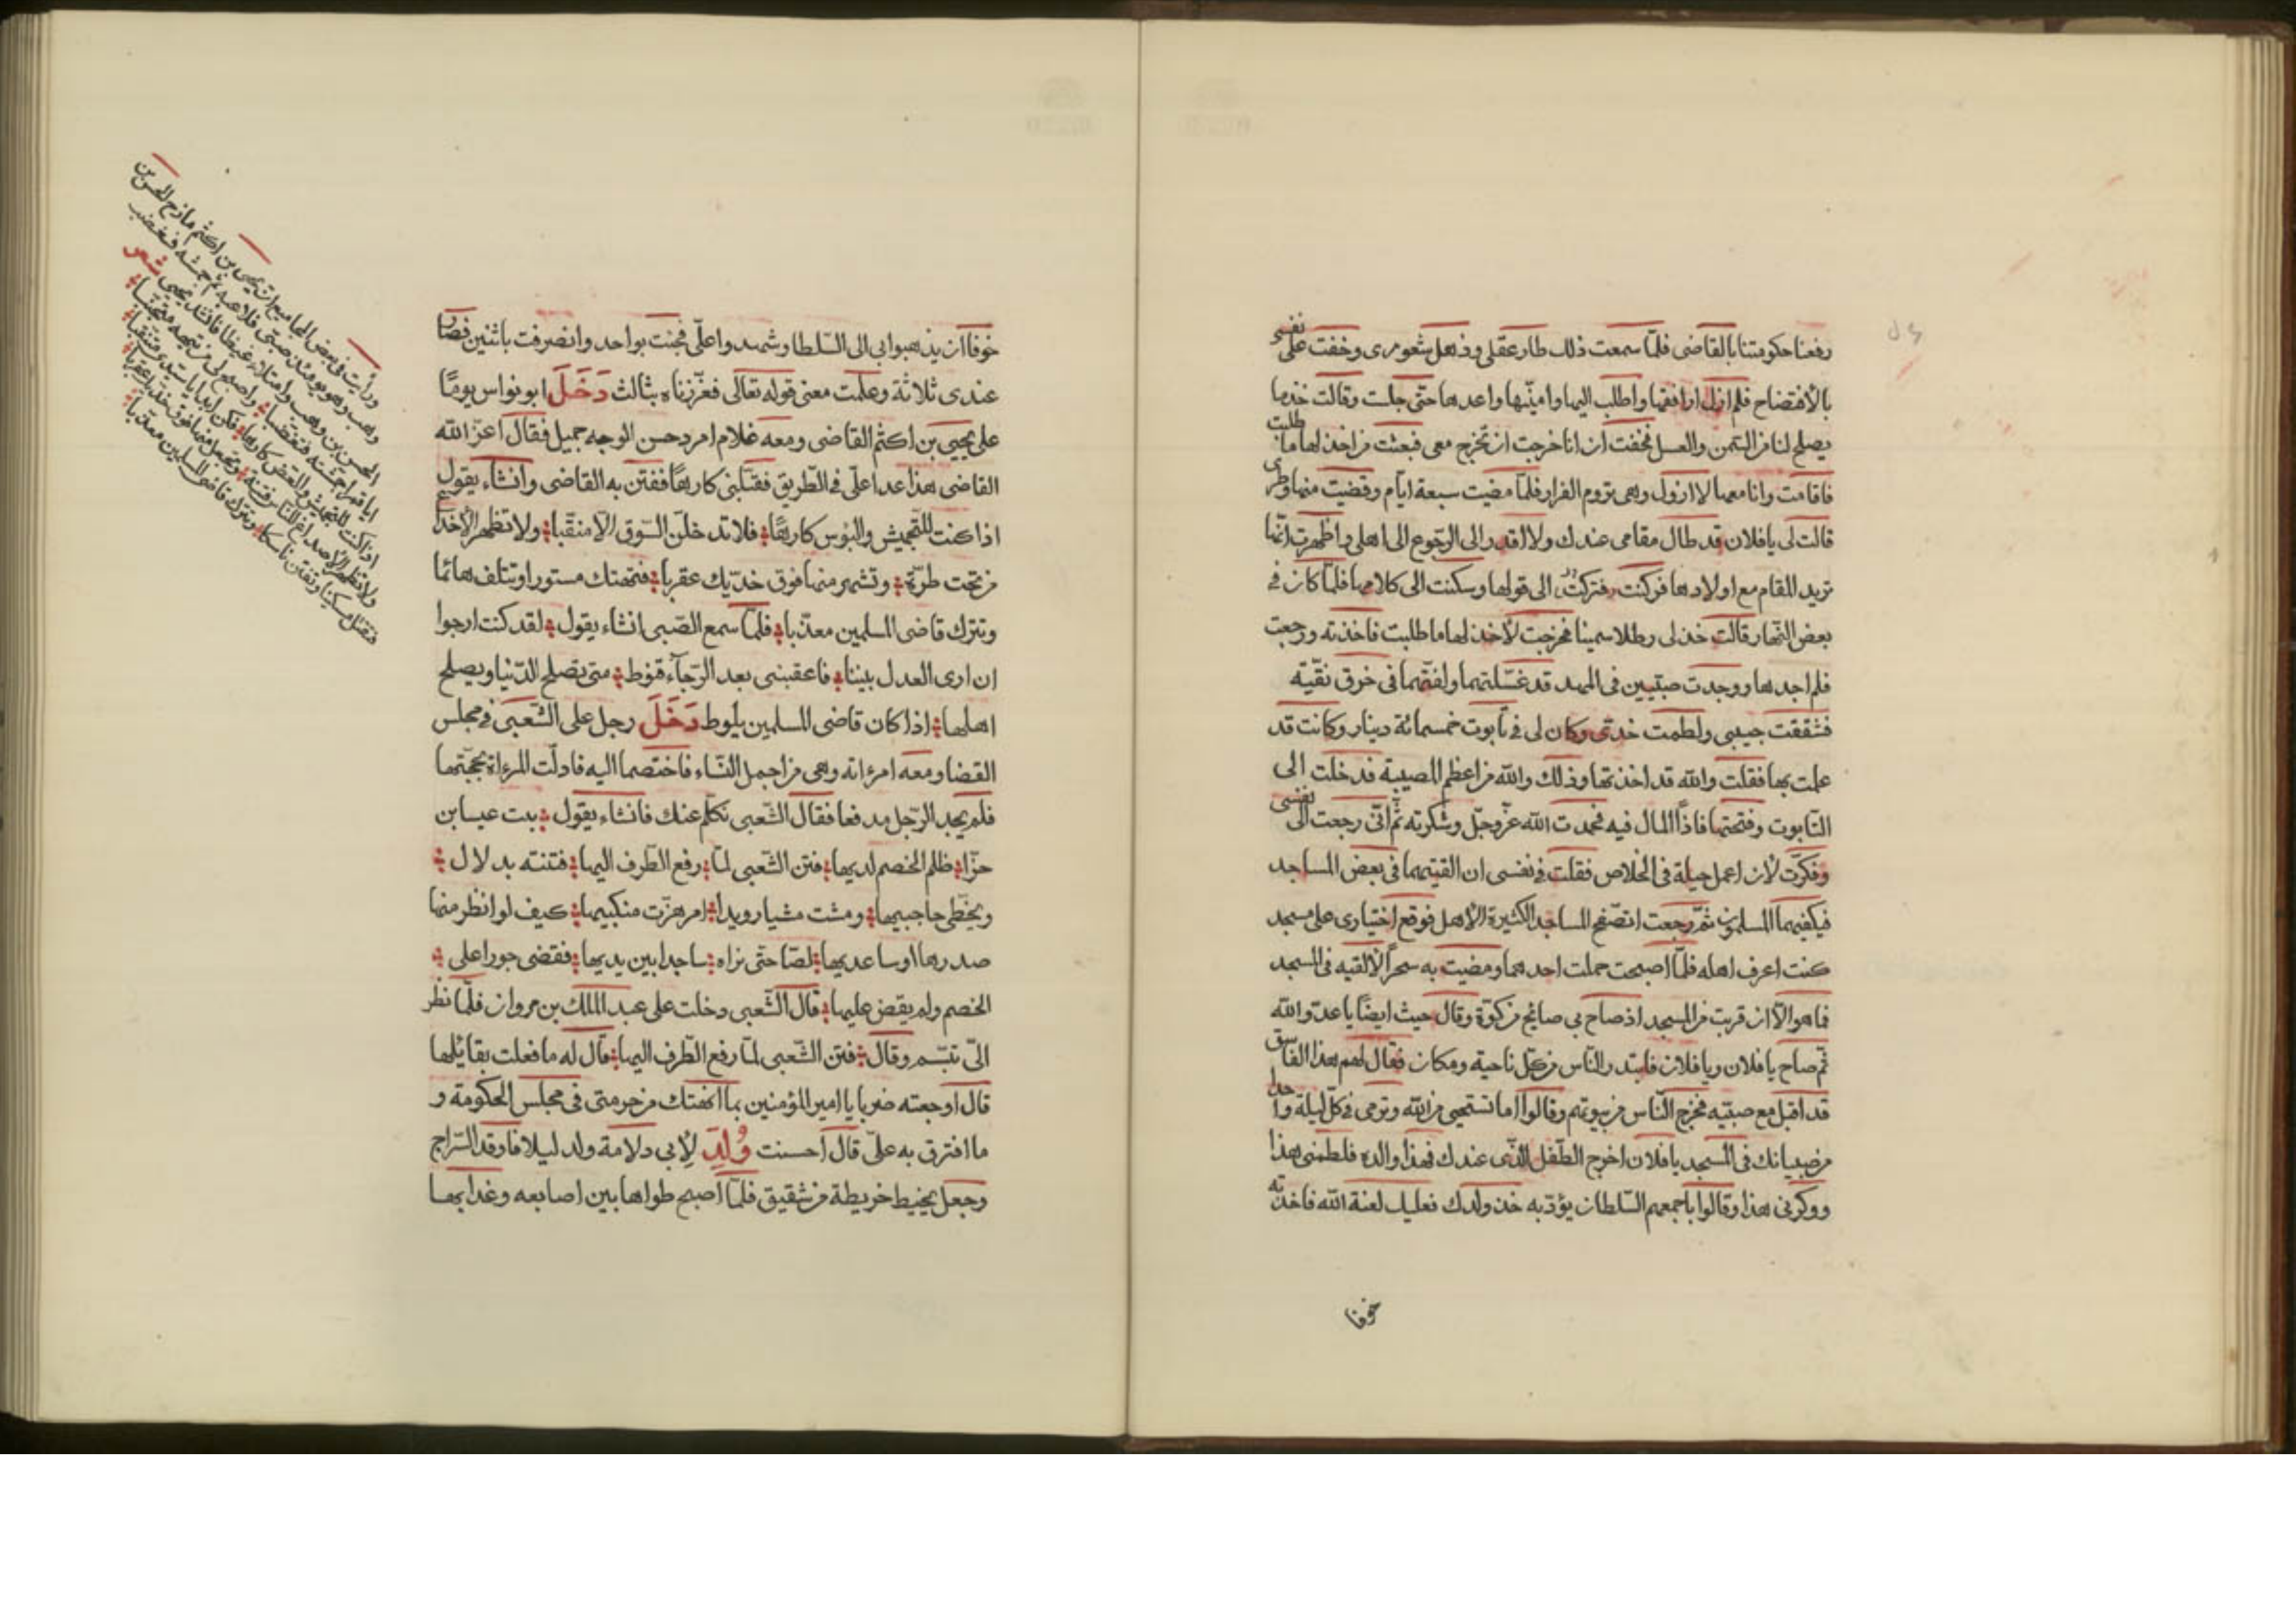 رفعنا حكومتنا بالقاضى فلمّا سمعت ذلك طار عقلى وذهل شعورى وخفت على نفسى
بالأفتضاح فلم ازل ارافقها واطلب اليها وامنّيها واعدها حتّى جلست وقالت خذ ما
يصلح لنا من السّمن والعسل فخفت ان انا خرجت ان تخرج معى فبعثت من اخذ لها ما طلبت
فاقامت وانا معها لا ازول وهى تروم الفرار فلمّا مضيت سبعة ايّام وقضيت منها وطرى
قالت لى يا فلان قد طال مقامى عندك ولا اقدر الى الرّجوع الى اهلى واظهرت انّها
تريد المقام مع اولادها فركنت الى قولها وسكنت الى كلامها فلمّا كان فى
بعض النّهار قالت خذ لى رطلا سمينا فخرجت لأخذ لها ما طلبت فاخذته ورجعت
فلم اجدها ووجدت صبيّين فى المهد قد غسّلتهما ولفّتهما فى خرق نقيّه
فشققت جيبى ولطمت خدّى وكان لى فى تابوت خمسمائة دينار وكانت قد
علمت بها فقلت والله قد اخذتها وذلك والله من اعظم المصيبة فدخلت الى
التّابوت وفتحتها فاذاً المال فيه فحمدت الله عزّ وجلّ وشكرته ثمّ انّى رجعت الى نفسى
وفكّرت لأن اعمل حيلة فى الخلاص فقلت فى نفسى ان القيتهما فى بعض المساجد
فيكفيهما المسلمون ثمّ رجعت اتصفّح المساجد الكثيرة الأهل فوقع اختيارى على مسجد
كنت اعرف اهله فلمّا اصبحت حملت احدهما ومضيت به سحراً لألقيه فى المسجد
فما هو الّا ان قربت من المسجد اذ صاح بى صائح من كوّة وقال حيث ايضاً يا عدوّ الله
ثمّ صاح يا فلان ويا فلان فابتدر النّاس من كلّ ناحية ومكان فقال لهم هذا الفاسق
قد اقبل مع صبيّه فخرج النّاس من بيوتهم وقالوا اما تستحيى من الله وترمى فى كلّ ليلة واحد
من صبيانك فى المسجد يا فلان اخرج الطّفل الّذى عندك فهذا والده فلطمنى هذا
ووكزنى هذا وقالوا باجمعهم السّلطان يؤدّبه خذ ولدك فعليك لعنة الله فاخذته
خوفا
خوفا ان يذهبوا بى الى السّلطا وشهدوا علىّ فجئت بواحد وانصرفت باثنين فصار
عندى ثلاثة وعلمت معنى قوله تعالى فعزّزناه بثالث دَخَلَ ابو نواس يومًا
على يحيى بن اكثم القاضى ومعه غلام امرد حسن الوجه جميل فقال اعزّ الله
القاضى هذا عدا علىّ فى الطّريق فقبّلنى كارهًا ففتن به القاضى وانشاء يقول
اذا كنت للتّجميش والبوس كارهًا فلا تدخلنّ السّوق الّا منقّبا ولا تظهر الأصداغ
من تحت طرّة وتشهر منها فوق خدّيك عقربا فتهتك مستورا وتتلف هائما
وتترك قاضى المسلمين معذّبا فلمّا سمع الصّبى انشاء يقول لقد كنت ارجوا
ان ارى العدل بيننا فاعقبنى بعد الرّجآء قنوط متى تصلح الدّنيا ويصلح
اهلها اذا كان قاضى المسلمين يلوط دَخَلَ رجل على الشّعبى فى مجلس
القضا ومعه امرءاته وهى من اجمل النّساء فاختصما اليه فادلّت المرءاة بحجّتها
فلم يجد الرّجل مدفعا فقال الشّعبى تكلّم عنك فانشاء يقول
ظلم الخصم لديها فتن الشّعبى لمّا رفع الطّرف اليها فتنته بدلال
وبخطّى حاجبيها ومشت مشيا رويدا ام هزّت منكبيها كيف لو انظر منها
صدرها او ساعديها لصّا حتّى نراه ساجدا بين يديها فقضى جورا على
الخصم ولم يقض عليها قال الشّعبى دخلت على عبد الملك بن مروان فلمّا نظر
الىّ تبسّم وقال فتن الشّعبى لمّا رفع الطّرف اليها قال له ما فعلت بقائلها
قال اوجعته ضربا يا امير المؤمنين بما انهتك من حرمتى فى مجلس الحكومة و
ما افترق به علىّ قال احسنت وُلِدَ لأبى دلامة ولد ليلا فاوقد السّراج
وجعل يخيط خريطة من شقيق فلمّا اصبح طواها بين اصابعه وغدا بها
ورأيت فى بعض المجاميع ان يحيى بن اكثم مازح الحسن بن
وهب وهو يومئذ صبىّ فلاعبه ثمّ جمشه فغضب
الحسن بن وهب فانشد يحيى شعر
ايا قمرا جمشته فتغضّبا
اذا كنت للتجميش والعض كارها
ولا تظهر الاصداغ للناس فتنة
فتقتل مسكينا وتفتن ناسكا وتترك قاضى المسلمين معذّبا